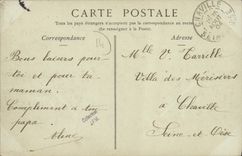 CARTE POSTALE
Tous les pays étrangers n'acceptent pas la correspondance
(se renseigner à la Poste).
Correspondance
Adresse
Bons baisers pour
toi et pour ta
maman.
Complément à ton
papa.
Melle V. Carrelle
Villa des Merisiers
à Chaville
Seine et Oise
CHAVILLE